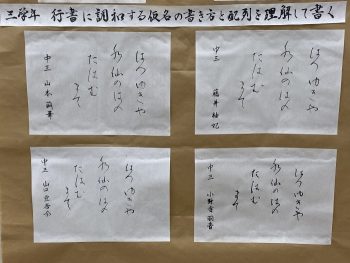 三学年 行書に調和する仮名の書き方と配列を理解して書く
はつゆきや
水仙のはの
たはむ
まで
中三
はつゆきや
水仙のはの
たはむ
まで
中三 藤井
はつゆきや
水仙のはの
たはむ
まで
中三 山口
はつゆきや
水仙のはの
たはむ
まで
中三